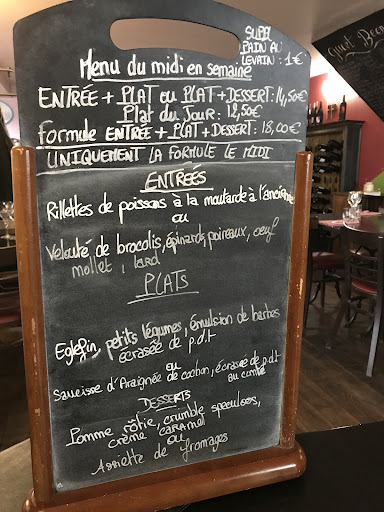 SUPPL
PAIN AU
LEVAIN : 1€
Menu du midi en semaine
ENTRÉE + PLAT OU PLAT + DESSERT : 14,50€
Plat du Jour : 12,50€
Formule ENTRÉE + PLAT + DESSERT : 18,00€
UNIQUEMENT LA FORMULE LE MIDI
ENTRÉES
Rillettes de poissons à la moutarde à l'ancienne
ou
Velouté de brocolis, épinards, poireaux, oeuf
mollet, lard
PLATS
Eglefin, petits légumes, émulsion de herbes
écrasée de p.d.t
ou
Saucisse d'Araignée de cochon, écrasée de p.d.t
au comté
DESSERTS
Pomme rôtie, crumble speculoos,
crème caramel
ou
Assiette de fromages